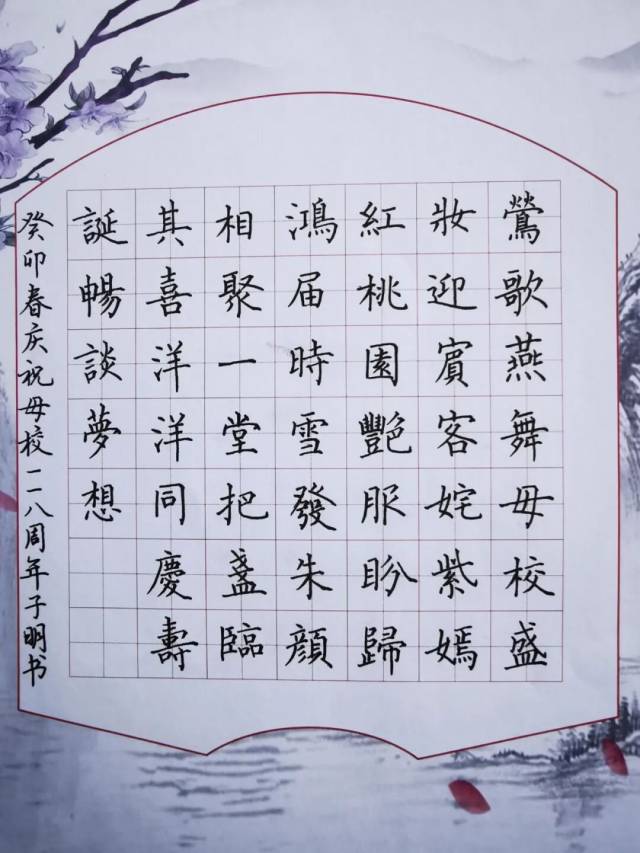 鶯歌燕舞母校盛
妝迎賓客姹紫嫣
紅桃園艷服盼歸
鴻届時雪發朱顔
相聚一堂把盞臨
其喜洋洋同慶壽
誕暢談夢想
癸卯春庆祝母校一一八周年子明书